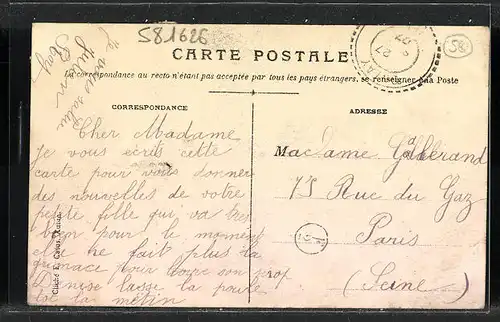 581626
58
CARTE POSTALE
La correspondance au recto n'étant pas acceptée par tous les pays étrangers, se renseigner à la Poste
CORRESPONDANCE
Cher Madame
je vous ecrits cette
carte pour vous donner
des nouvelles de votre
petite fille qui va tres
bien pour le moment
elle ne fait plus la
grimace pour boire son
Denise lasse la poule
la metin
je vous salue
ADRESSE
Madame Galberand
75 Rue du Gaz
Paris
(Seine)
27
07
Cliché E.